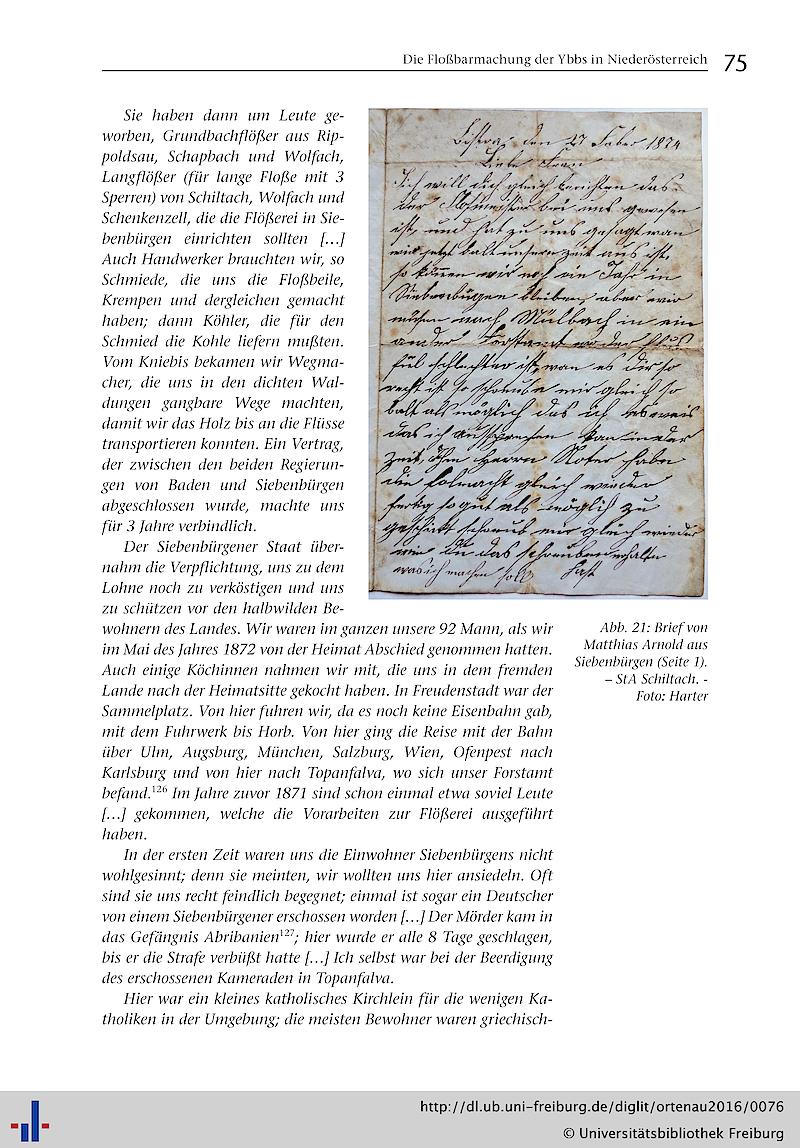 Die Floßbarmachung der Ybbs in Niederösterreich 75
Sie haben dann um Leute ge-
worben, Grundbachflößer aus Rip-
poldsau, Schapbach und Wolfach,
Langflößer (für lange Floße mit 3
Sperren) von Schiltach, Wolfach und
Schenkenzell, die die Flößerei in Sie-
benbürgen einrichten sollten […]
Auch Handwerker brauchten wir, so
Schmiede, die uns die Floßbeile,
Krempen und dergleichen gemacht
haben; dann Köhler, die für den
Schmied die Kohle liefern mußten.
Vom Kniebis bekamen wir Wegma-
cher, die uns in den dichten Wal-
dungen gangbare Wege machten,
damit wir das Holz bis an die Flüsse
transportieren konnten. Ein Vertrag,
der zwischen den beiden Regierun-
gen von Baden und Siebenbürgen
abgeschlossen wurde, machte uns
für 3 Jahre verbindlich.
Der Siebenbürgener Staat über-
nahm die Verpflichtung, uns zu dem
Lohne noch zu verköstigen und uns
zu schützen vor den halbwilden Be-
wohnern des Landes. Wir waren im ganzen unsere 92 Mann, als wir
im Mai des Jahres 1872 von der Heimat Abschied genommen hatten.
Auch einige Köchinnen nahmen wir mit, die uns in dem fremden
Lande nach der Heimatsitte gekocht haben. In Freudenstadt war der
Sammelplatz. Von hier fuhren wir, da es noch keine Eisenbahn gab,
mit dem Fuhrwerk bis Horb. Von hier ging die Reise mit der Bahn
über Ulm, Augsburg, München, Salzburg, Wien, Ofenpest nach
Karlsburg und von hier nach Topanfalva, wo sich unser Forstamt
befand.126 Im Jahre zuvor 1871 sind schon einmal etwa soviel Leute
[…] gekommen, welche die Vorarbeiten zur Flößerei ausgeführt
haben.
In der ersten Zeit waren uns die Einwohner Siebenbürgens nicht
wohlgesinnt; denn sie meinten, wir wollten uns hier ansiedeln. Oft
sind sie uns recht feindlich begegnet; einmal ist sogar ein Deutscher
von einem Siebenbürgener erschossen worden […] Der Mörder kam in
das Gefängnis Abribanien127; hier wurde er alle 8 Tage geschlagen,
bis er die Strafe verbüßt hatte […] Ich selbst war bei der Beerdigung
des erschossenen Kameraden in Topanfalva.
Hier war ein kleines katholisches Kirchlein für die wenigen Ka-
tholiken in der Umgebung; die meisten Bewohner waren griechisch-
Bistra, den 27 1874
Liebe Frau
Ich will dich gleich berichten das
der Floßmeister bei uns gewesen
ist, und hat zu uns gesagt wan
jetzt balt unsere Zeit aus ist,
so können wir noch ein Jahr in
Siebenbürgen bleiben, aber wir
müßen nach Mülbach in ein
ander Forstamt wo der Fluß
fiel schlechter ist, wan es dir so
recht ist so schreibe mir gleich so
balt als möglich das ich es weis
das ich kan in der
Zeit, Dem Herrn Noter habe
die Folmacht gleich wieder
fertig so gut als möglich zu
geschikt schreib mir gleich wieder
du das schreiben erhalten
was ich machen soll
Abb. 21: Brief von
Matthias Arnold aus
Siebenbürgen (Seite 1).
– StA Schiltach. -
Foto: Harter
http://dl.ub.uni-freiburg.de/diglit/ortenau2016/0076
© Universitätsbibliothek Freiburg